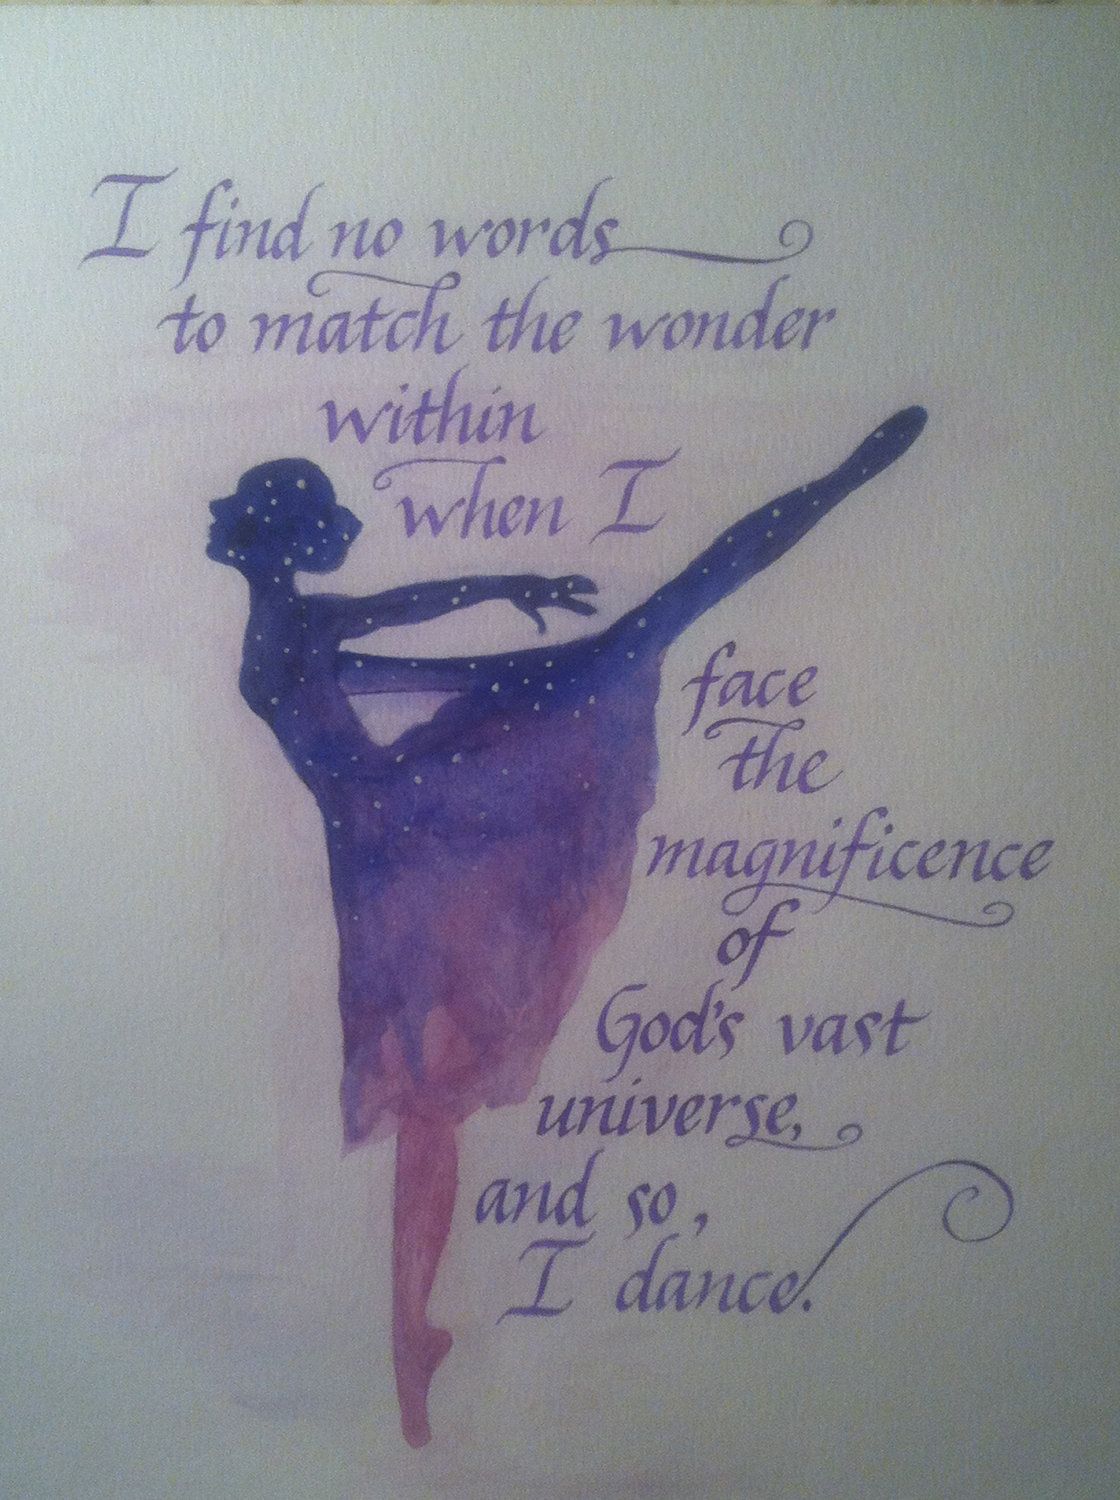 I find no words
to match the wonder
within
when I
face
the
magnificence
of
God's vast
universe,
and so,
I dance.